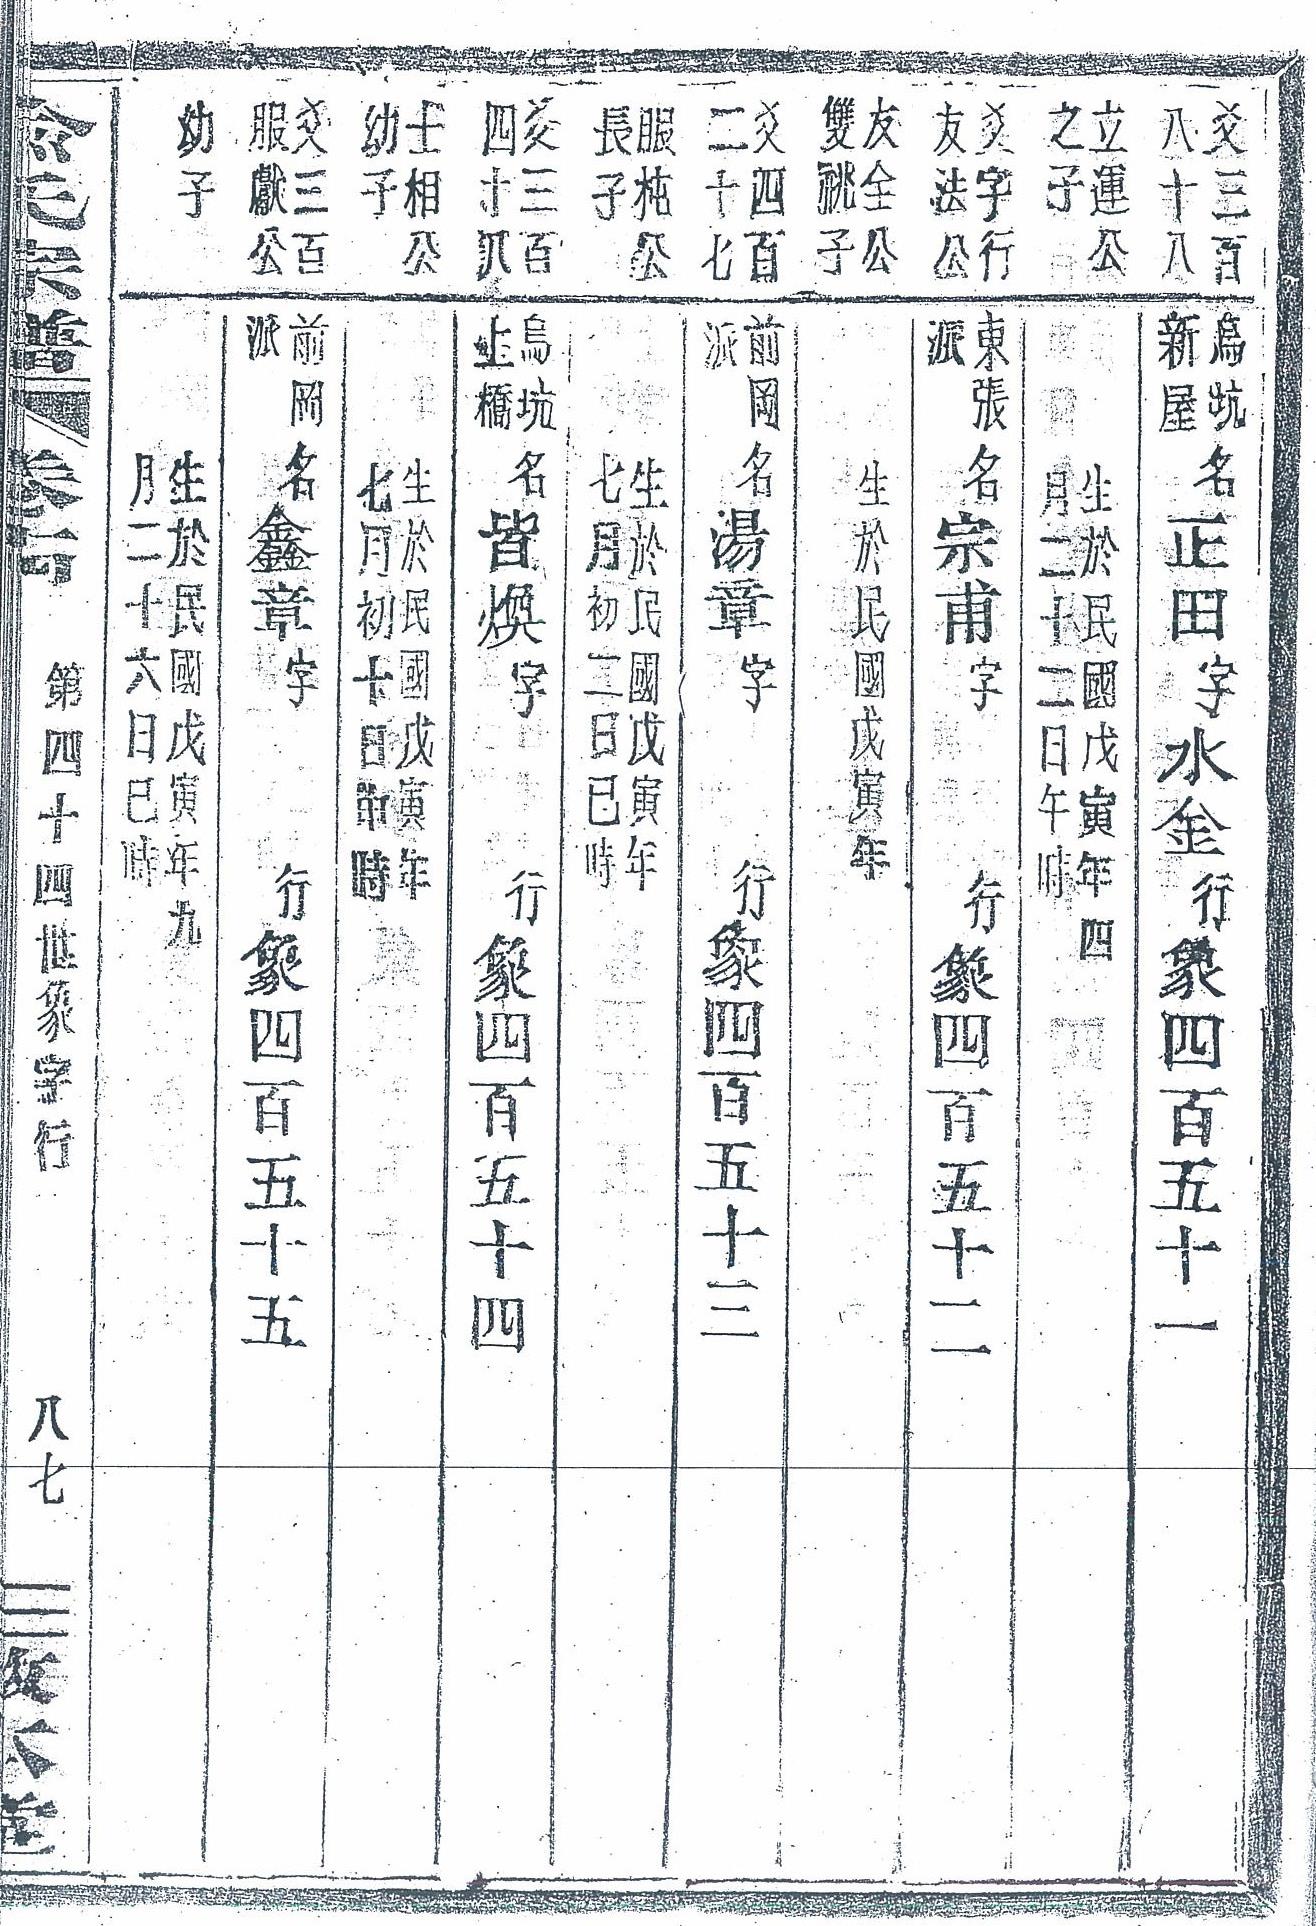 爻三百
八十八
立運公
之子
烏坑
新屋
名正田字水金行象四百五十一
生於民國戊寅年四
月二十二日午時
爻字行
友法公
友全公
雙祧子
東張
派
名宗甫字 行象四百五十二
生於民國戊寅年
爻四百
二十七
服㭃公
長子
前岡
派
名湯章字 行象四百五十三
生於民國戊寅年
七月初二日巳時
爻三百
四十八
士相公
幼子
烏坑
上橋
名皆煥字 行象四百五十四
生於民國戊寅年
七月初十日 時
爻三百
服獻公
幼子
前岡
派
名鑫章字 行象四百五十五
生於民國戊寅年九
月二十六日巳時
宗譜 卷
第四十四世象字行
八七
三 堂